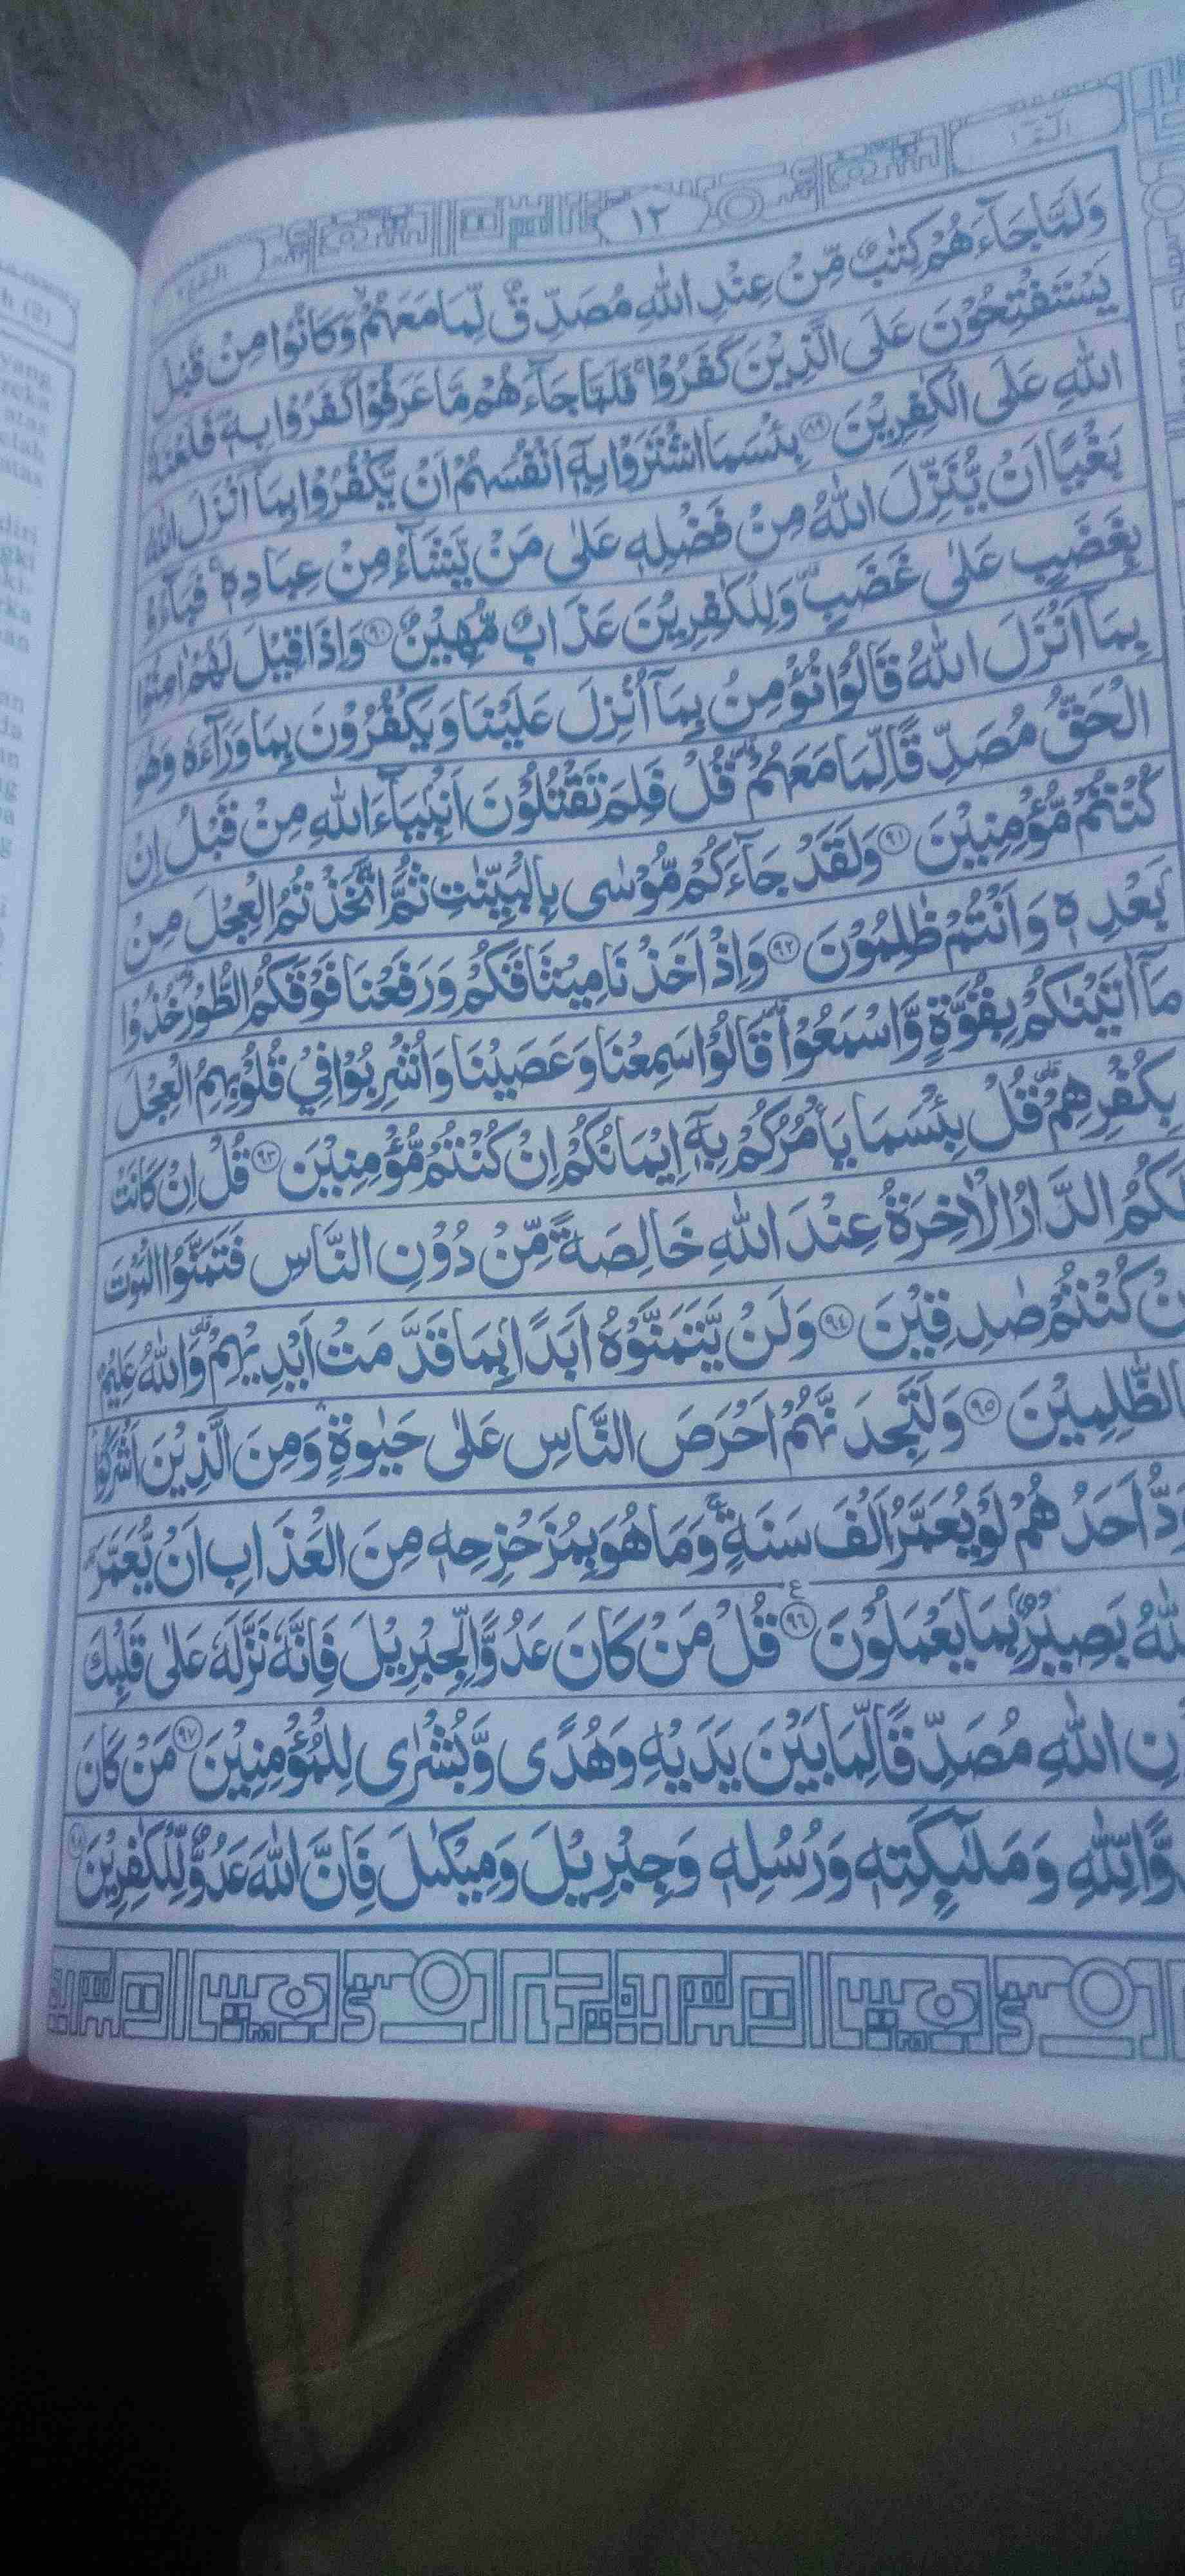 ١٢
وَلَمَّا جَآءَهُمْ كِتٰبٌ مِّنْ عِنْدِ اللّٰهِ مُصَدِّقٌ لِّمَا مَعَهُمْۙ وَكَانُوْا مِنْ قَبْلُ
يَسْتَفْتِحُوْنَ عَلَى الَّذِيْنَ كَفَرُوْاۚ فَلَمَّا جَآءَهُمْ مَّا عَرَفُوْا كَفَرُوْا بِهٖۚ فَلَعْنَةُ
اللّٰهِ عَلَى الْكٰفِرِيْنَ ۝٨٩ بِئْسَمَا اشْتَرَوْا بِهٖٓ اَنْفُسَهُمْ اَنْ يَّكْفُرُوْا بِمَآ اَنْزَلَ اللّٰهُ
بَغْيًا اَنْ يُّنَزِّلَ اللّٰهُ مِنْ فَضْلِهٖ عَلٰى مَنْ يَّشَآءُ مِنْ عِبَادِهٖۚ فَبَآءُوْ
بِغَضَبٍ عَلٰى غَضَبٍۗ وَلِلْكٰفِرِيْنَ عَذَابٌ مُّهِيْنٌ ۝٩٠ وَاِذَا قِيْلَ لَهُمْ اٰمِنُوْا
بِمَآ اَنْزَلَ اللّٰهُ قَالُوْا نُؤْمِنُ بِمَآ اُنْزِلَ عَلَيْنَا وَيَكْفُرُوْنَ بِمَا وَرَآءَهٗ وَهُوَ
الْحَقُّ مُصَدِّقًا لِّمَا مَعَهُمْۗ قُلْ فَلِمَ تَقْتُلُوْنَ اَنْۢبِيَآءَ اللّٰهِ مِنْ قَبْلُ اِنْ
كُنْتُمْ مُّؤْمِنِيْنَ ۝٩١ وَلَقَدْ جَآءَكُمْ مُّوْسٰى بِالْبَيِّنٰتِ ثُمَّ اتَّخَذْتُمُ الْعِجْلَ مِنْۢ
بَعْدِهٖ وَاَنْتُمْ ظٰلِمُوْنَ ۝٩٢ وَاِذْ اَخَذْنَا مِيْثَاقَكُمْ وَرَفَعْنَا فَوْقَكُمُ الطُّوْرَۗ خُذُوْا
مَآ اٰتَيْنٰكُمْ بِقُوَّةٍ وَّاسْمَعُوْاۗ قَالُوْا سَمِعْنَا وَعَصَيْنَا وَاُشْرِبُوْا فِيْ قُلُوْبِهِمُ الْعِجْلَ
بِكُفْرِهِمْۗ قُلْ بِئْسَمَا يَأْمُرُكُمْ بِهٖٓ اِيْمَانُكُمْ اِنْ كُنْتُمْ مُّؤْمِنِيْنَ ۝٩٣ قُلْ اِنْ كَانَتْ
لَكُمُ الدَّارُ الْاٰخِرَةُ عِنْدَ اللّٰهِ خَالِصَةً مِّنْ دُوْنِ النَّاسِ فَتَمَنَّوُا الْمَوْتَ
نْ كُنْتُمْ صٰدِقِيْنَ ۝٩٤ وَلَنْ يَّتَمَنَّوْهُ اَبَدًاۢ بِمَا قَدَّمَتْ اَيْدِيْهِمْۗ وَاللّٰهُ عَلِيْمٌۢ
الظّٰلِمِيْنَ ۝٩٥ وَلَتَجِدَنَّهُمْ اَحْرَصَ النَّاسِ عَلٰى حَيٰوةٍۛ وَمِنَ الَّذِيْنَ اَشْرَكُوْاۛ
وَدُّ اَحَدُهُمْ لَوْ يُعَمَّرُ اَلْفَ سَنَةٍۚ وَمَا هُوَ بِمُزَحْزِحِهٖ مِنَ الْعَذَابِ اَنْ يُّعَمَّرَۗ
للّٰهُ بَصِيْرٌۢ بِمَا يَعْمَلُوْنَ ۝٩٦ قُلْ مَنْ كَانَ عَدُوًّا لِّجِبْرِيْلَ فَاِنَّهٗ نَزَّلَهٗ عَلٰى قَلْبِكَ
نِ اللّٰهِ مُصَدِّقًا لِّمَا بَيْنَ يَدَيْهِ وَهُدًى وَّبُشْرٰى لِلْمُؤْمِنِيْنَ ۝٩٧ مَنْ كَانَ
وًّا لِّلّٰهِ وَمَلٰۤىِٕكَتِهٖ وَرُسُلِهٖ وَجِبْرِيْلَ وَمِيْكٰىلَ فَاِنَّ اللّٰهَ عَدُوٌّ لِّلْكٰفِرِيْنَ ۝٩٨